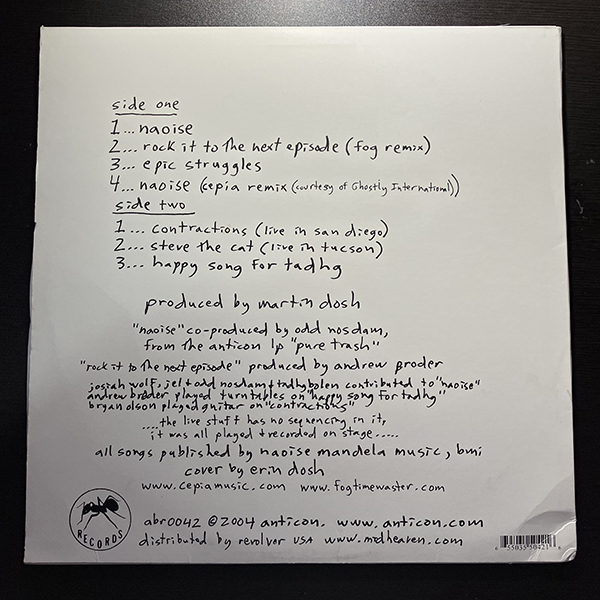 side one
1... naoise
2... rock it to the next episode (fog remix)
3... epic struggles
4... naoise (cepia remix (courtesy of Ghostly International))
side two
1... contractions (live in san diego)
2... steve the cat (live in tucson)
3... happy song for tadhg
produced by martin dosh
"naoise" co-produced by odd nosdam,
from the anticon lp "pure trash"
"rock it to the next episode" produced by andrew broder
josiah wolf, jel + odd nosdam + tadhybolen contributed to "naoise"
andrew broder played turntables on "happy song for tadhg"
bryan olson played guitar on "contractions"
....the live stuff has no sequencing in it,
it was all played + recorded on stage.....
all songs published by naoise mandela music, bmi
cover by erin dosh
www.cepiamusic.com www.fogtimewaster.com
RECORDS
abr0042 © 2004 anticon. www.anticon.com
distributed by revolver USA www.midheaven.com
6 55035 50421 6